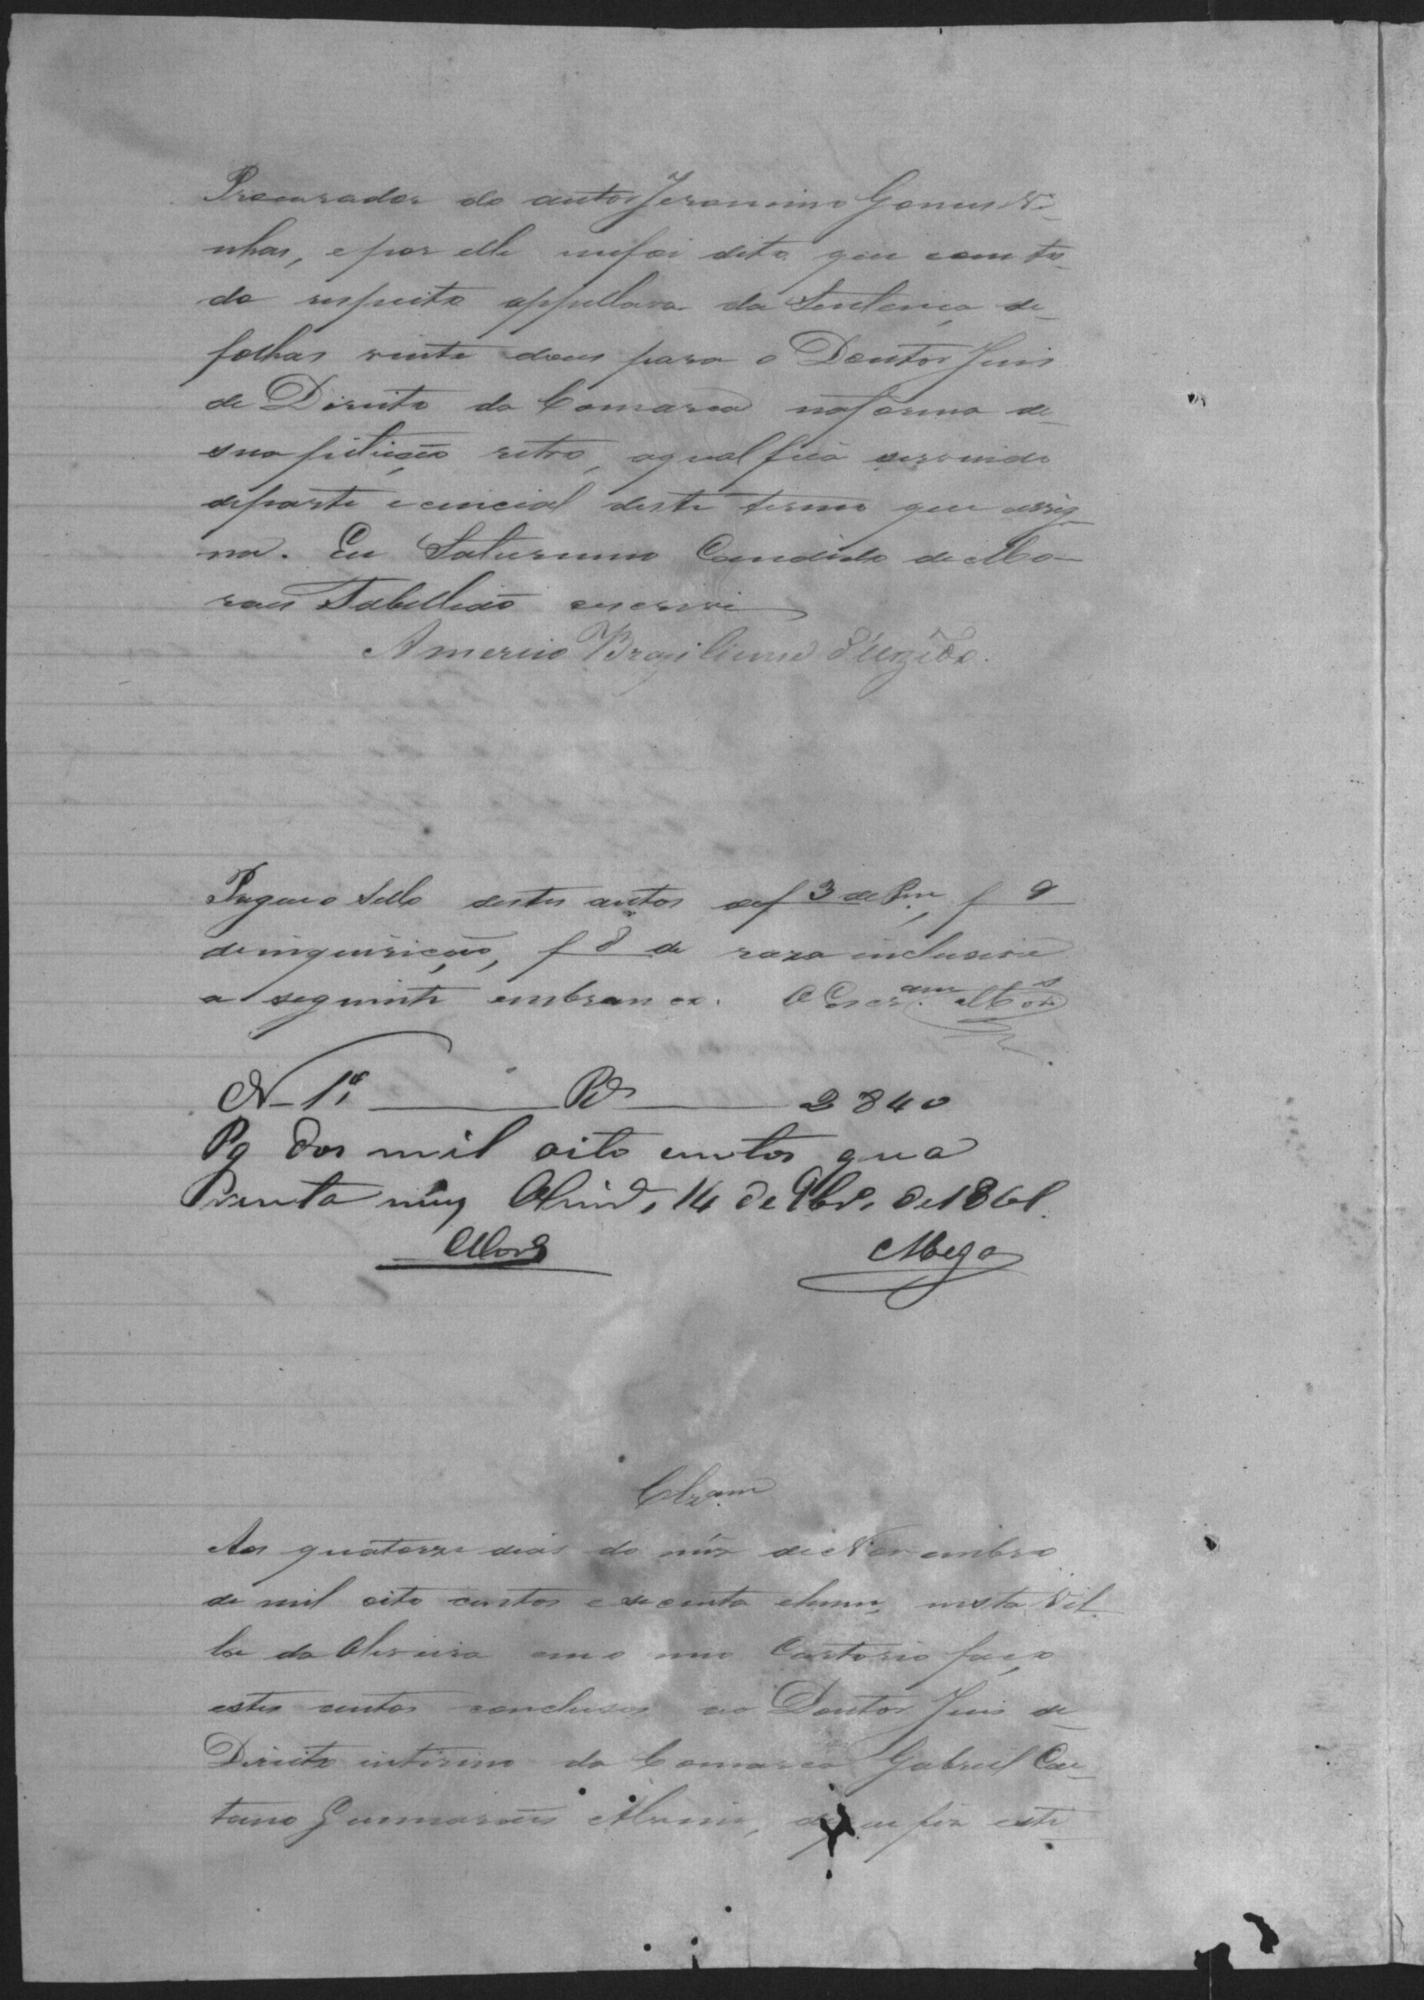 Procurador do autor Jeronimo Gomes Vi-
nhas, e por elle mefoi dito que com to-
do respeito appellava da Sentença de
folhas vinte dous para o Doutor Juis
de Direito da Comarca naforma de
sua pitição retro, aqual fica servindo
departe e cencial deste termo que assig-
na. Eu Saturnino Candido de Mo-
raes Tabellião escrevi
Americo Brasiliense
Pagou o Sello destes autos def 3 de f 9
deinquirição, f 8 de raza inclusive
a seguinte embranco. O Escr.am
N 1º Rs 2840
Pg dos mil oito centos qua
renta reis 14 de 9br. de 1861.
Clzam
Aos quatorze dias do mês de Novembro
de mil oito centos e secenta ehum, nesta Vil-
la da Oliveira em o meu Cartorio faço
estes autos conclusos ao Doutor Juis de
Direito intirino da Comarca Gabriel Cae-
tano Guimaraes, deque fiz este